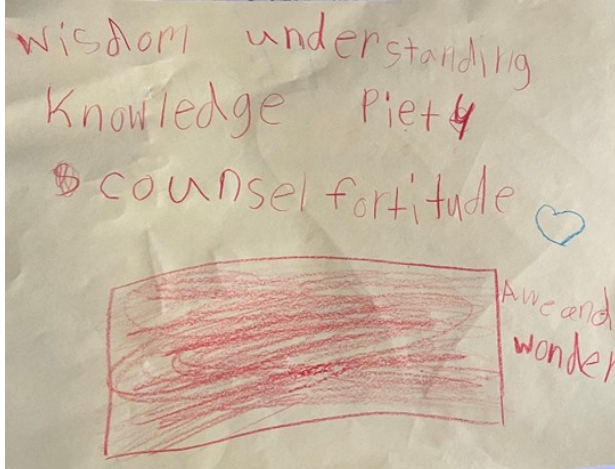 wisdom understanding
Knowledge Piety
counsel fortitude
Awe and
wonder